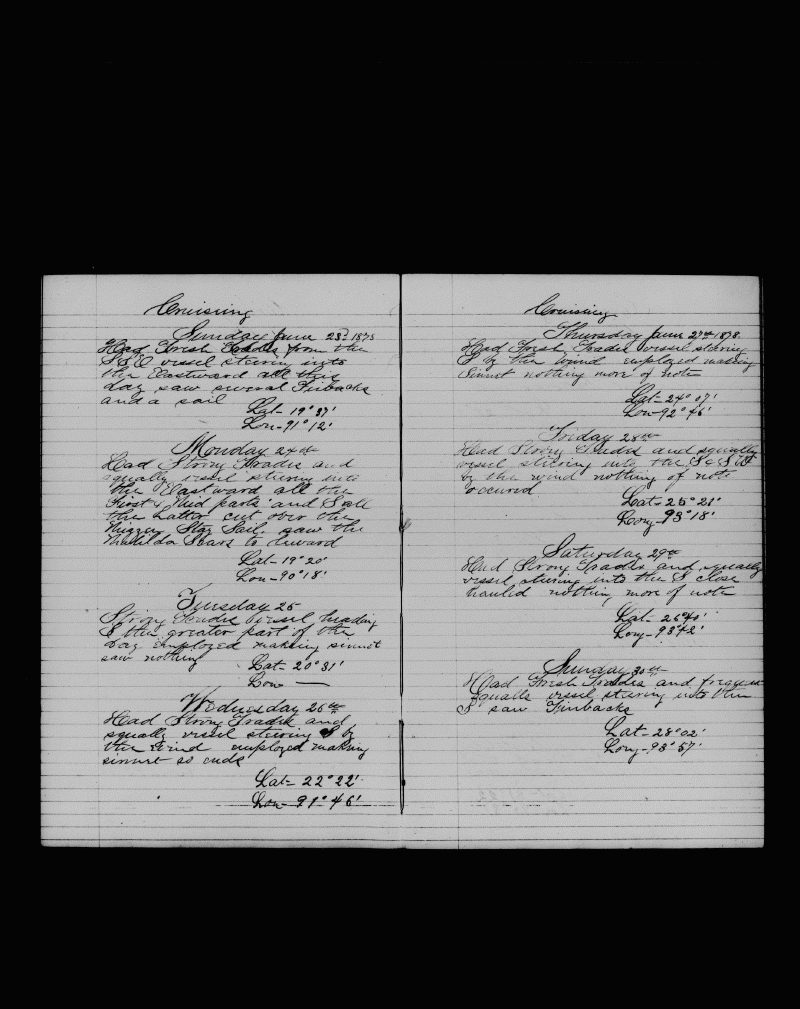 Cruising
Sunday June 23rd 1878
Had Fresh Trades from the
S.E. vessel steering into
the Eastward all this
day saw several Finbacks
and a sail
Lat- 19° 37'
Lon- 91° 12'
Monday 24th
Had Strong Trades and
squally vessel steering into
the Eastward all the
First & Mid parts and S all
the Latter cut over the
Mizzen Stay Sail, saw the
Matilda Sears to leward
Lat- 19° 20'
Lon- 90° 18'
Tuesday 25
Strong Trades vessel heading
S the greater part of the
day employed making sinnet
saw nothing
Lat- 20° 31'
Lon —
Wednesday 26th
Had Strong Trades and
squally vessel steering S by
the wind employed making
sinnet so ends
Lat- 22° 22'
Lon- 91° 46'
Cruising
Thursday June 27th 1878
Had Fresh Trades vessel steering
S by the wind employed making
Sinnet nothing more of note
Lat- 24° 07'
Lon- 92° 46'
Friday 28th
Had Strong Trades and squally
vessel steering into the S & SW
by the wind nothing of note
occured
Lat- 25° 21'
Long- 93° 18'
Saturday 29th
Had Strong Trades and squally
vessel steering into the S close
hauled nothing more of note
Lat- 26° 40'
Long- 93° 42'
Sunday 30th
Had Fresh Trades and frequent
squalls vessel steering into the
S saw Finbacks
Lat- 28° 02'
Long- 93° 57'